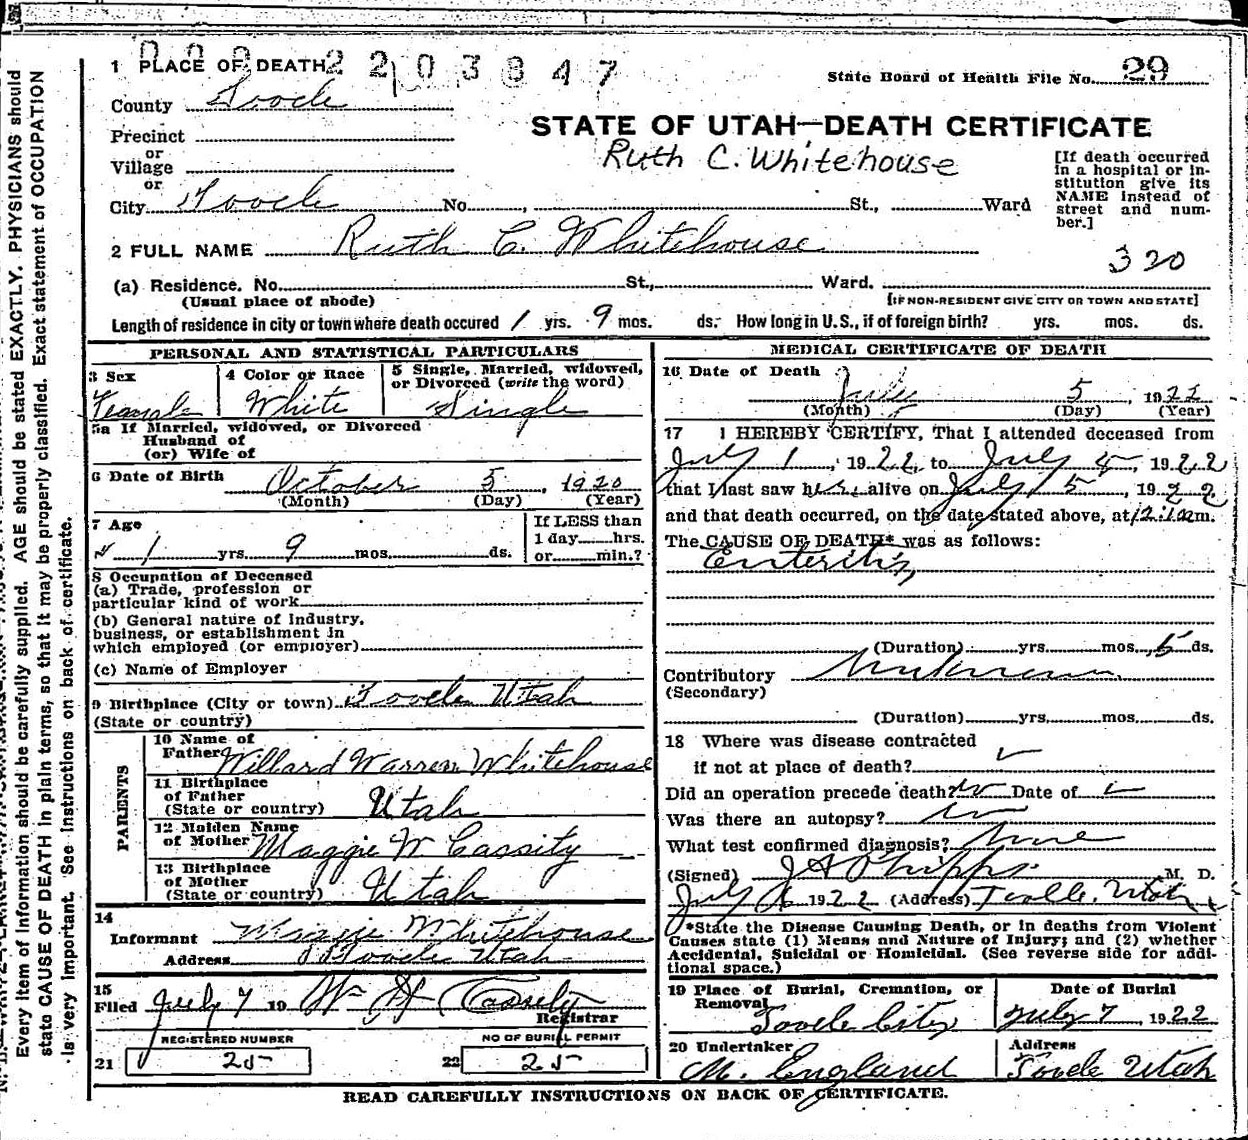 1 PLACE OF DEATH 2203847
State Board of Health File No. 29
County Tooele
STATE OF UTAH—DEATH CERTIFICATE
Precinct
or
Village
Ruth C. Whitehouse
[If death occurred in a hospital or institution give its NAME instead of street and number.]
or
City Tooele No. , St., Ward
2 FULL NAME Ruth C. Whitehouse
320
(a) Residence. No. St., Ward.
(Usual place of abode) [IF NON-RESIDENT GIVE CITY OR TOWN AND STATE]
Length of residence in city or town where death occured 1 yrs. 9 mos. ds. How long in U.S., if of foreign birth? yrs. mos. ds.
PERSONAL AND STATISTICAL PARTICULARS
3 Sex
Female
4 Color or Race
White
5 Single, Married, widowed,
or Divorced (write the word)
Single
5a If Married, widowed, or Divorced
Husband of
(or) Wife of
6 Date of Birth October 5, 1920
(Month) (Day) (Year)
7 Age
1 yrs. 9 mos. ds.
If LESS than
1 day hrs.
or min.?
8 Occupation of Deceased
(a) Trade, profession or
particular kind of work
(b) General nature of Industry,
business, or establishment in
which employed (or employer)
(c) Name of Employer
9 Birthplace (City or town) Tooele Utah
(State or country)
PARENTS
10 Name of
Father Willard Warren Whitehouse
11 Birthplace
of Father
(State or country) Utah
12 Maiden Name
of Mother Maggie W Cassity
13 Birthplace
of Mother
(State or country) Utah
14
Informant Maggie Whitehouse
Address Tooele Utah
15
Filed July 7 19 Wm H Cassity
Registrar
REGISTERED NUMBER NO OF BURIAL PERMIT
21 25 22 25
MEDICAL CERTIFICATE OF DEATH
16 Date of Death July 5, 1922
(Month) (Day) (Year)
17 I HEREBY CERTIFY, That I attended deceased from
July 1, 1922, to July 5, 1922
that I last saw her alive on July 5, 1922
and that death occurred, on the date stated above, at m.
The CAUSE OF DEATH* was as follows:
Enteritis
(Duration) yrs. mos. 5 ds.
Contributory Unknown
(Secondary)
(Duration) yrs. mos. ds.
18 Where was disease contracted
if not at place of death?
Did an operation precede death? no Date of
Was there an autopsy? no
What test confirmed diagnosis? None
(Signed) J A Phipps M. D.
July 1922 (Address) Tooele, Utah
*State the Disease Causing Death, or in deaths from Violent
Causes state (1) Means and Nature of Injury; and (2) whether
Accidental, Suicidal or Homicidal. (See reverse side for addi-
tional space.)
19 Place of Burial, Cremation, or
Removal
Tooele City
Date of Burial
July 7, 1922
20 Undertaker
M. England
Address
Tooele Utah
READ CAREFULLY INSTRUCTIONS ON BACK OF CERTIFICATE.
Every item of information should be carefully supplied. AGE should be stated EXACTLY. PHYSICIANS should
state CAUSE OF DEATH in plain terms, so that it may be properly classified. Exact statement of OCCUPATION
is very important. See instructions on back of certificate.